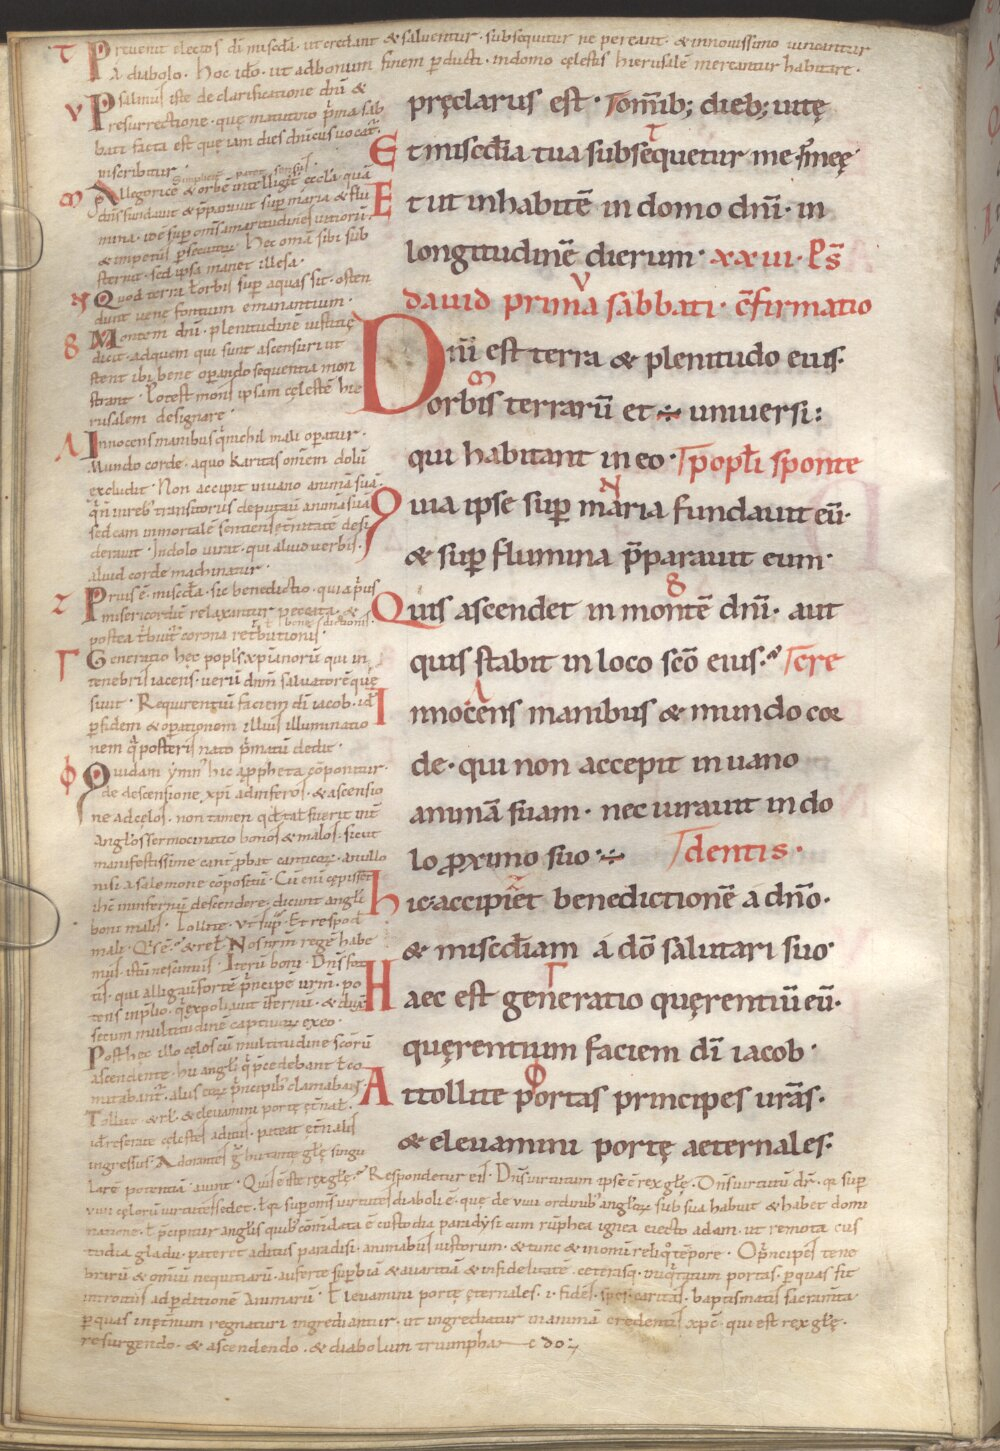 τ Preuenit electos dī misc̄da. ut credant & saluentur. subsequitur ne pereant. & in nouissimo uincantur
A diabolo. hoc ido. ut ad bonum finem p̄ducti. in domo cęlestis hierusalē mereantur habitare.
v Psalmus iste de clarificatione dn̄i &
resurrectione. quę matutino p̄ma sab
bati facta est que iam dies dn̄icus uocat̄.
inscribitur.
Simplicit patet sensus.
Allegoricę & orbē intelligit eccl̄a quā
dn̄s fundauit & p̄parauit sup̄ maria & flu
mina. idē sup̄ om̄s amaritudines uitiorū.
& impetus p̄secutor̄. hec om̄ia sibi sub
sternit. sed ipsa manet illesa.
Quod terra t̄ orbis sup̄ aquas sit. osten
dunt uenę fontium emanantium.
8 Montem dn̄i. plenitudinē iustitię
dicit. ad quem qui sunt ascensuri ut
stent ibi bene operando sequentia mon
strant. Potest mons ipsam cęlestē hie
rusalem designare.
Λ Innocens manibus q̄ nihil mali operatur.
Mundo corde. a quo karitas om̄em dolū
excludit. Non accipit in uano animā suā.
q̄ n̄ in reb; transitoriis deputauit animā suā
sed eam inmortalē sentiens ęt̄nitatē desi
derauit. In dolo iurat. qui aliud uerbis.
aliud corde machinatur.
z Prius ē misc̄da. sic benedictio. quia p̄us
misericordię relaxantur peccata. &
postea t̄buit̄ corona ret̄butionis.
t̄ benedictionis.
Γ Generatio hęc popl̄s xp̄ianorū qui in
tenebris iacens. uerū dnm̄ saluatorē quę
siuit. Requirentiū faciem dī iacob. id
p̄ fidem & operationem illius illuminatio
nem q̄ posteris nato p̄matū dedit.
φ Quidam ymn̄ hic a p̄pheta cōponitur.
de descensione xp̄i ad inferos. & ascensio
ne ad cęlos. non tamen qd̄ tal̄ fuerit int̄
anglos sermocinatio bonos & malos. sicut
manifestissime cant̄ p̄bat canticor̄. a nullo
nisi a salomone cōpositū. Cū enī cępisset
ih̄c in infernū descendere. dicunt angl̄i
boni malis. Tollite. vt̄ sup̄. Et respond̄
mali. Q̄s ē. & rel̄. Nos nr̄m regē habe
mus. istū nescimus. Iterū boni. Dn̄s for
tis. qui alligauit fortē p̄ncipē urm̄. po
tens in p̄lio. q̄ expoliauit īfernū. & duxit
secum multitudinē captiuor̄ ex eo.
Post hęc illo cęlos cū multitudine scōrū
ascendente. hii angl̄i q̄ p̄cedebant t̄ co
mitabant̄. aliis cęlor̄ p̄ncipib; clamabant.
Tollite. & rl̄. & eleuamini portę ęt̄nal̄.
id reserate cęlestes aditus. pateat ęt̄nalis
ingressus. Adorantes ḡ humanitatę gl̄ę singu
larē potentiā aiunt. Quis ē iste rex gl̄ę. Respondetur eis. Dn̄s uirtutum ipse ē rex gl̄ę. Dn̄s uirtutū dr̄. q̄a sup̄
uiiii cęlorū uirtutes sedet. t̄ q̄a sup̄ om̄s uirtutes diaboli ē. quę de uiiii ordinib; anglor̄ sub sua habuit & habet domi
natione. t̄ p̄cipitur anglis quib; cōm̄data ē custodia paradysi cum rūphea ignea eiecto adam. ut remota cus
todia gladii. pateret aditus paradisi. animabus iustorum. & tunc & in om̄i reliq̄ tēpore. O p̄ncipes tene
brarū & om̄iū nequitiarū. auferte sup̄biā & auaritiā & infidelitatē. ceterasq. iniq̄tatum portas. p̄ quas fit
introitus ad p̄ditionē animarū. Eleuamini portę ęternales. i. fides. spes. caritas. baptismatis sacram̄ta.
p̄ quas in p̄petuum regnaturi ingrediantur. ut ingrediatur in animā credentis xp̄c. qui est rex gl̄ę.
resurgendo. & ascendendo. & diabolum triumphando;
pręclarus est. Tom̄ib; dieb; uitę
Et misc̄dia tua subsequetur me. męę
Et ut inhabitē in domo dn̄i. in
longitudinē dierum. xxiii. Ps̄
dauid prima sabbati. c̄firmatio
Dn̄i est terra & plenitudo eius.
orbis terrarū et ÷ uniuersi:
qui habitant in eo. Tpopl̄i sponte
Quia ipse sup̄ maria fundauit eū.
& sup̄ flumina p̄parauit eum.
Quis ascendet in montē dn̄i. aut
quis stabit in loco scō eius. Tcre
Innocens manibus & mundo cor
de. qui non accepit in uano
animā suam. nec iurauit in do
lo proximo suo ÷ Tdentis.
hic accipiet benedictionē a dn̄o.
& misc̄diam a dō salutari suo
Haec est generatio quęrentiū eū.
quęrentium faciem dī iacob.
Attollite portas principes urās.
& eleuamini portę aeternales.